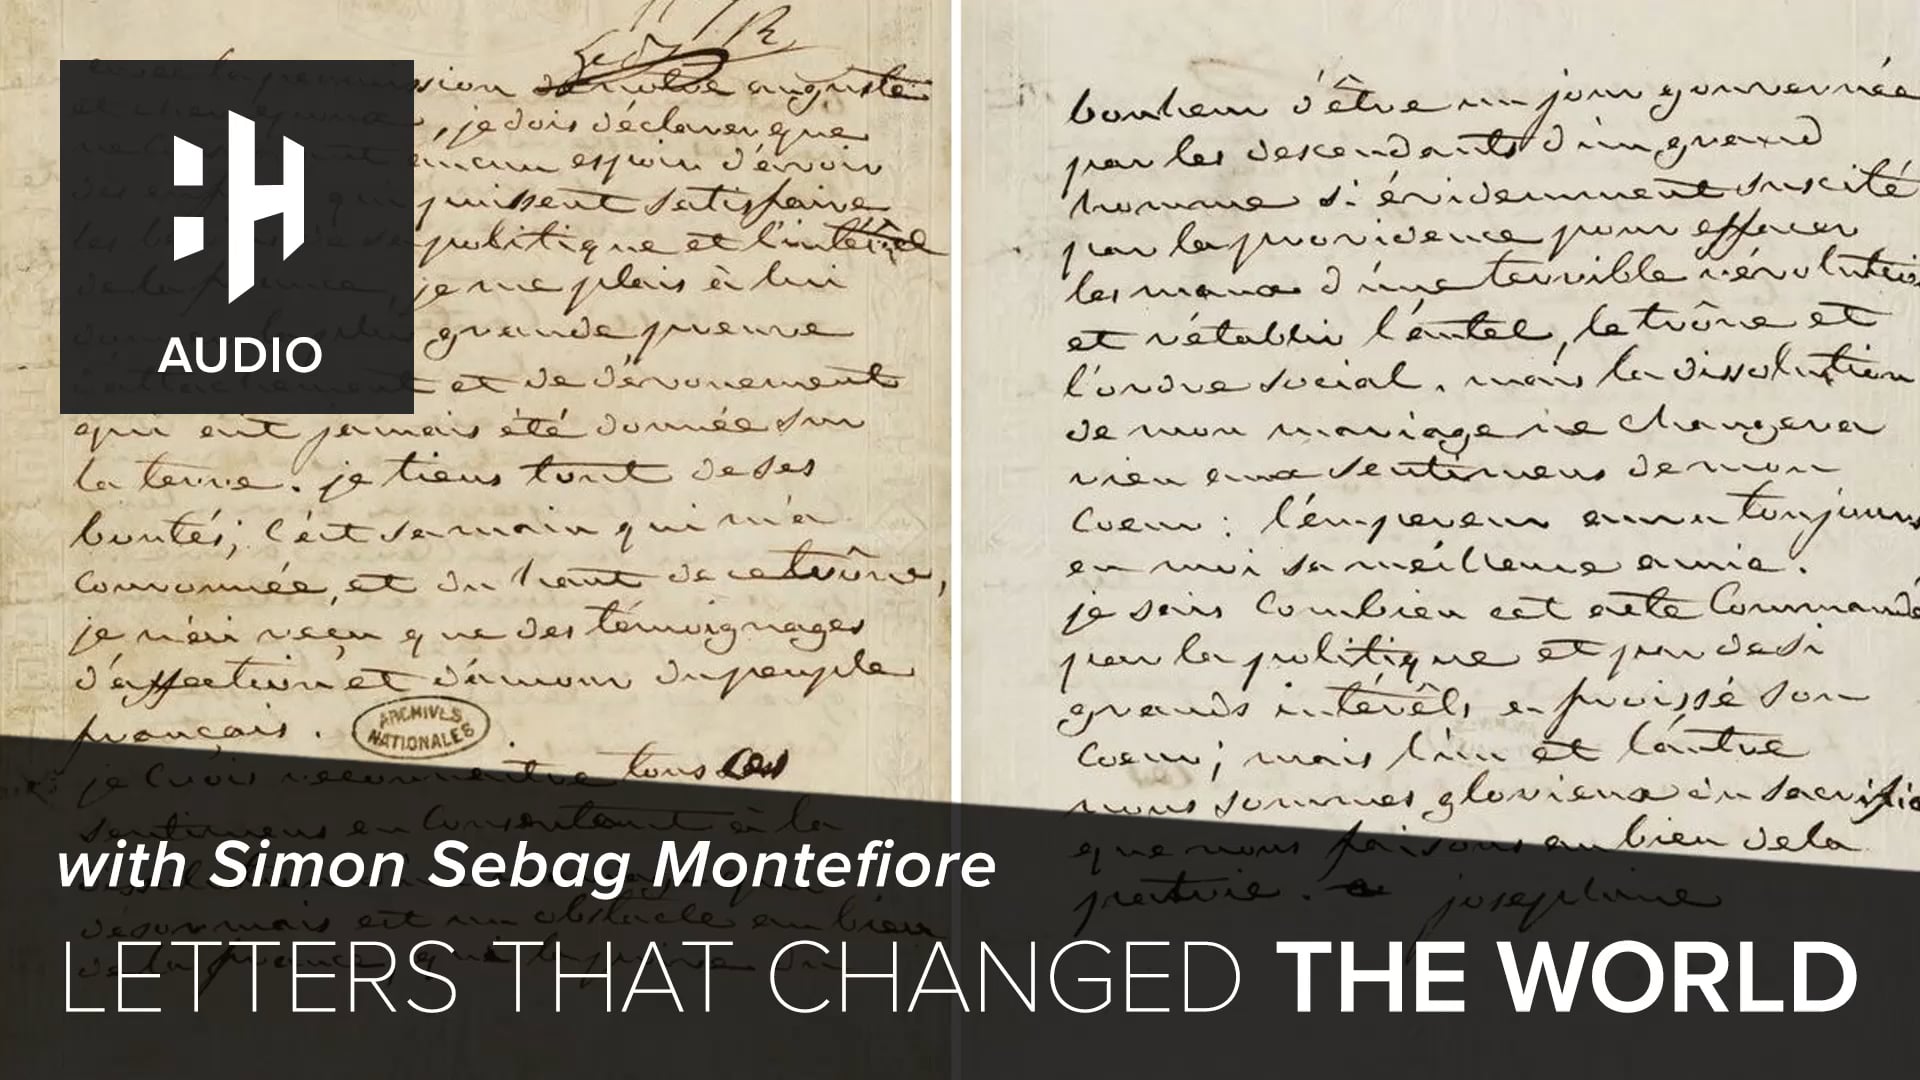 avec la permission de notre auguste
et cher époux, je dois déclarer que
ne conservant aucun espoir d'avoir
des enfans qui puissent satisfaire
les besoins de sa politique et l'intérêt
de la france, je me plais à lui
donner la plus grande preuve
d'attachement et de dévouement
qui ait jamais été donnée sur
la terre. je tiens tout de ses
bontés; c'est sa main qui m'a
couronnée, et du haut de ce trône,
je n'ai reçu que des témoignages
d'affection et d'amour du peuple
français.
ARCHIVES
NATIONALES
je crois reconnaitre tous ces
sentimens en consentant à la
désormais est un obstacle au bien
de la france, qui la prive du
bonheur d'être un jour gouvernée
par les descendants d'un grand
homme si évidemment suscité
par la providence pour effacer
les maux d'une terrible révolution
et rétablir l'autel, le trône et
l'ordre social. mais la dissolution
de mon mariage ne changera
rien aux sentimens de mon
coeur: l'empereur aura toujours
en moi sa meilleure amie.
je sais combien cet acte commandé
par la politique et par de si
grands intérêts a froissé son
coeur; mais l'un et l'autre
nous sommes glorieux du sacrifice
que nous faisons au bien de la
patrie. josephine
:H
AUDIO
with Simon Sebag Montefiore
LETTERS THAT CHANGED THE WORLD